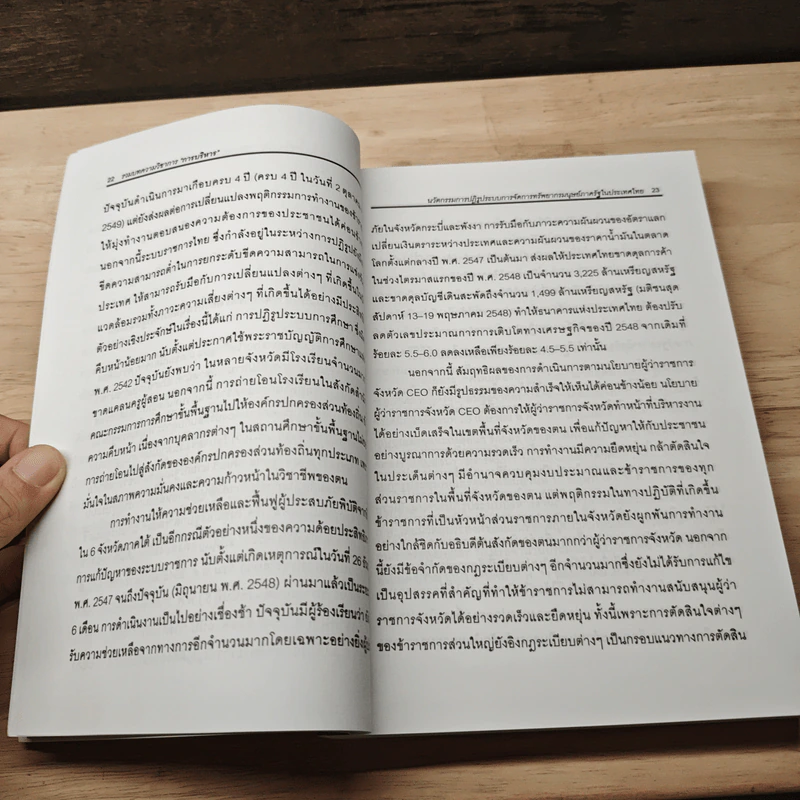 22 รวมบทความวิชาการ "การบริหาร"
ปัจจุบันดำเนินการมาเกือบครบ 4 ปี (ครบ 4 ปี ในวันที่ 2 ตุลาคม
2549) แต่ยังส่งผลต่อการเปลี่ยนแปลงพฤติกรรมการทำงานของข้า
ให้มุ่งทำงานตอบสนองความต้องการของประชาชนได้ค่อนข้าง
นอกจากนี้ระบบราชการไทย ซึ่งกำลังอยู่ในระหว่างการปฏิรูป
ขีดความสามารถต่ำในการยกระดับขีดความสามารถในการแข่ง
ประเทศ ให้สามารถรับมือกับการเปลี่ยนแปลงต่างๆ ที่เกิดขึ้นใน
แวดล้อมรวมทั้งภาวะความเสี่ยงต่างๆ ที่เกิดขึ้นได้อย่างมีประสิท
ตัวอย่างเชิงประจักษ์ในเรื่องนี้ได้แก่ การปฏิรูประบบการศึกษา ซึ่ง
คืบหน้าน้อยมาก นับตั้งแต่ประกาศใช้พระราชบัญญัติการศึกษา
พ.ศ. 2542 ปัจจุบันยังพบว่า ในหลายจังหวัดมีโรงเรียนจำนวนมาก
ขาดแคลนครูผู้สอน นอกจากนี้ การถ่ายโอนโรงเรียนในสังกัดสำ
คณะกรรมการการศึกษาขั้นพื้นฐานไปให้องค์กรปกครองส่วนท้องถิ่น
ความคืบหน้า เนื่องจากบุคลากรต่างๆ ในสถานศึกษาขั้นพื้นฐานไม่
การถ่ายโอนไปสู่สังกัดขององค์กรปกครองส่วนท้องถิ่นทุกประเภท เพ
มั่นใจในสภาพความมั่นคงและความก้าวหน้าในวิชาชีพของตน
การทำงานให้ความช่วยเหลือและฟื้นฟูผู้ประสบภัยพิบัติจาก
ใน 6 จังหวัดภาคใต้ เป็นอีกกรณีตัวอย่างหนึ่งของความด้อยประสิทธิ
การแก้ปัญหาของระบบราชการ นับตั้งแต่เกิดเหตุการณ์ในวันที่ 26 ธัน
พ.ศ. 2547 จนถึงปัจจุบัน (มิถุนายน พ.ศ. 2548) ผ่านมาแล้วเป็นระยะ
6 เดือน การดำเนินงานเป็นไปอย่างเชื่องช้า ปัจจุบันมีผู้ร้องเรียนว่า
รับความช่วยเหลือจากทางการอีกจำนวนมากโดยเฉพาะอย่างยิ่งผู้
นวัตกรรมการปฏิรูประบบการจัดการทรัพยากรมนุษย์ภาครัฐในประเทศไทย 23
ภัยในจังหวัดกระบี่และพังงา การรับมือกับภาวะความผันผวนของอัตราแลก
เปลี่ยนเงินตราระหว่างประเทศและความผันผวนของราคาน้ำมันในตลาด
โลกตั้งแต่กลางปี พ.ศ. 2547 เป็นต้นมา ส่งผลให้ประเทศไทยขาดดุลการค้า
ในช่วงไตรมาสแรกของปี พ.ศ. 2548 เป็นจำนวน 3,225 ล้านเหรียญสหรัฐ
และขาดดุลบัญชีเดินสะพัดถึงจำนวน 1,499 ล้านเหรียญสหรัฐ (มติชนสุด
สัปดาห์ 13-19 พฤษภาคม 2548) ทำให้ธนาคารแห่งประเทศไทย ต้องปรับ
ลดตัวเลขประมาณการการเติบโตทางเศรษฐกิจของปี 2548 จากเดิมที่
ร้อยละ 5.5-6.0 ลดลงเหลือเพียงร้อยละ 4.5-5.5 เท่านั้น
นอกจากนี้ สัมฤทธิผลของการดำเนินการตามนโยบายผู้ว่าราชการ
จังหวัด CEO ก็ยังมีรูปธรรมของความสำเร็จให้เห็นได้ค่อนข้างน้อย นโยบาย
ผู้ว่าราชการจังหวัด CEO ต้องการให้ผู้ว่าราชการจังหวัดทำหน้าที่บริหารงาน
ได้อย่างเบ็ดเสร็จในเขตพื้นที่จังหวัดของตน เพื่อแก้ปัญหาให้กับประชาชน
อย่างบูรณาการด้วยความรวดเร็ว การทำงานมีความยืดหยุ่น กล้าตัดสินใจ
ในประเด็นต่างๆ มีอำนาจควบคุมงบประมาณและข้าราชการของทุก
ส่วนราชการในพื้นที่จังหวัดของตน แต่พฤติกรรมในทางปฏิบัติที่เกิดขึ้น
ข้าราชการที่เป็นหัวหน้าส่วนราชการภายในจังหวัดยังผูกพันการทำงาน
อย่างใกล้ชิดกับอธิบดีต้นสังกัดของตนมากกว่าผู้ว่าราชการจังหวัด นอกจาก
นี้ยังมีข้อจำกัดของกฎระเบียบต่างๆ อีกจำนวนมากซึ่งยังไม่ได้รับการแก้ไข
เป็นอุปสรรคที่สำคัญที่ทำให้ข้าราชการไม่สามารถทำงานสนับสนุนผู้ว่า
ราชการจังหวัดได้อย่างรวดเร็วและยืดหยุ่น ทั้งนี้เพราะการตัดสินใจต่างๆ
ของข้าราชการส่วนใหญ่ยังอิงกฎระเบียบต่างๆ เป็นกรอบแนวทางการตัดสิน